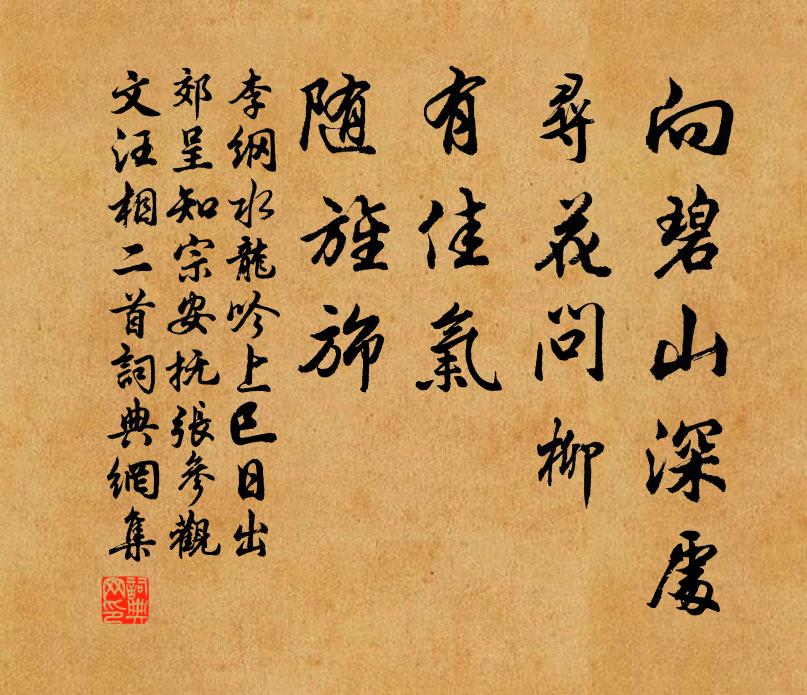 向碧山深處
尋花問柳
有佳氣
随旌斾
李綱水龍吟上巳日出
郊呈知宗安抚張參觀
文汪相二首詞典網集
詞典
网印